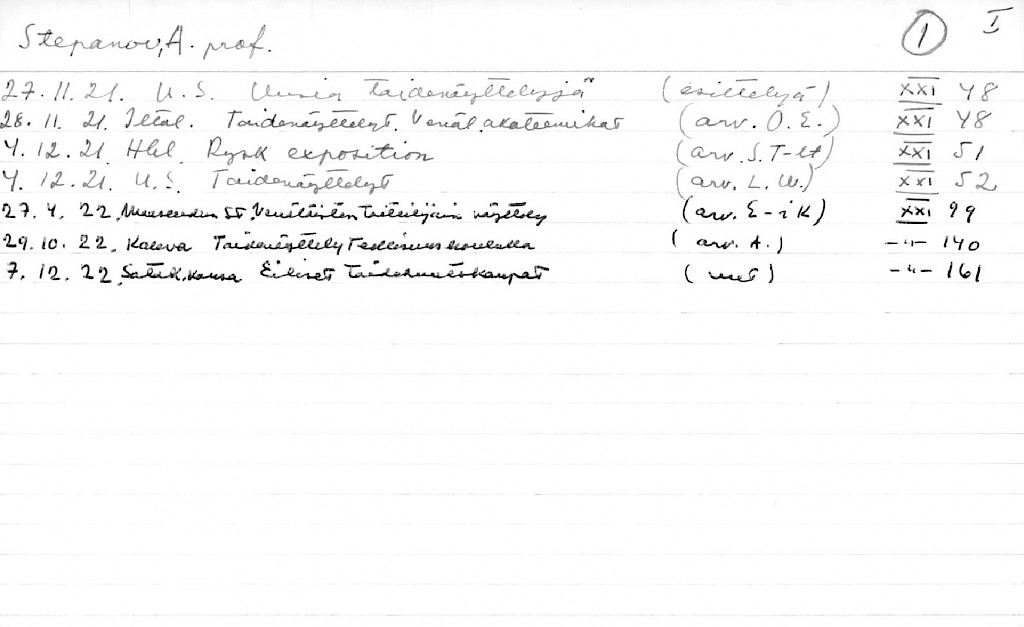 Stepanov, A. prof. 1 I
27.11.21. U.S. Uusia taidenäyttelyjä (esittelyä) XXI 48
28.11.21. Iltal. Taidenäyttelyt. Venäl. akateemikot (arv. O.E.) XXI 48
4.12.21 Hbl. Rysk exposition (arv. S.T-lt) XXI 51
4.12.21. U.S. Taidenäyttelyt (arv. L.W.) XXI 52
27.4.22. SS Venäläisten taiteilijain näyttely (arv. E-i K) XXI 99
29.10.22. Kaleva Taidenäyttely Teollisuuskoululla (arv. A.) -"- 140
7.12.22. Satak. kansa Eiliset taidehuutokaupat (uut) -"- 161